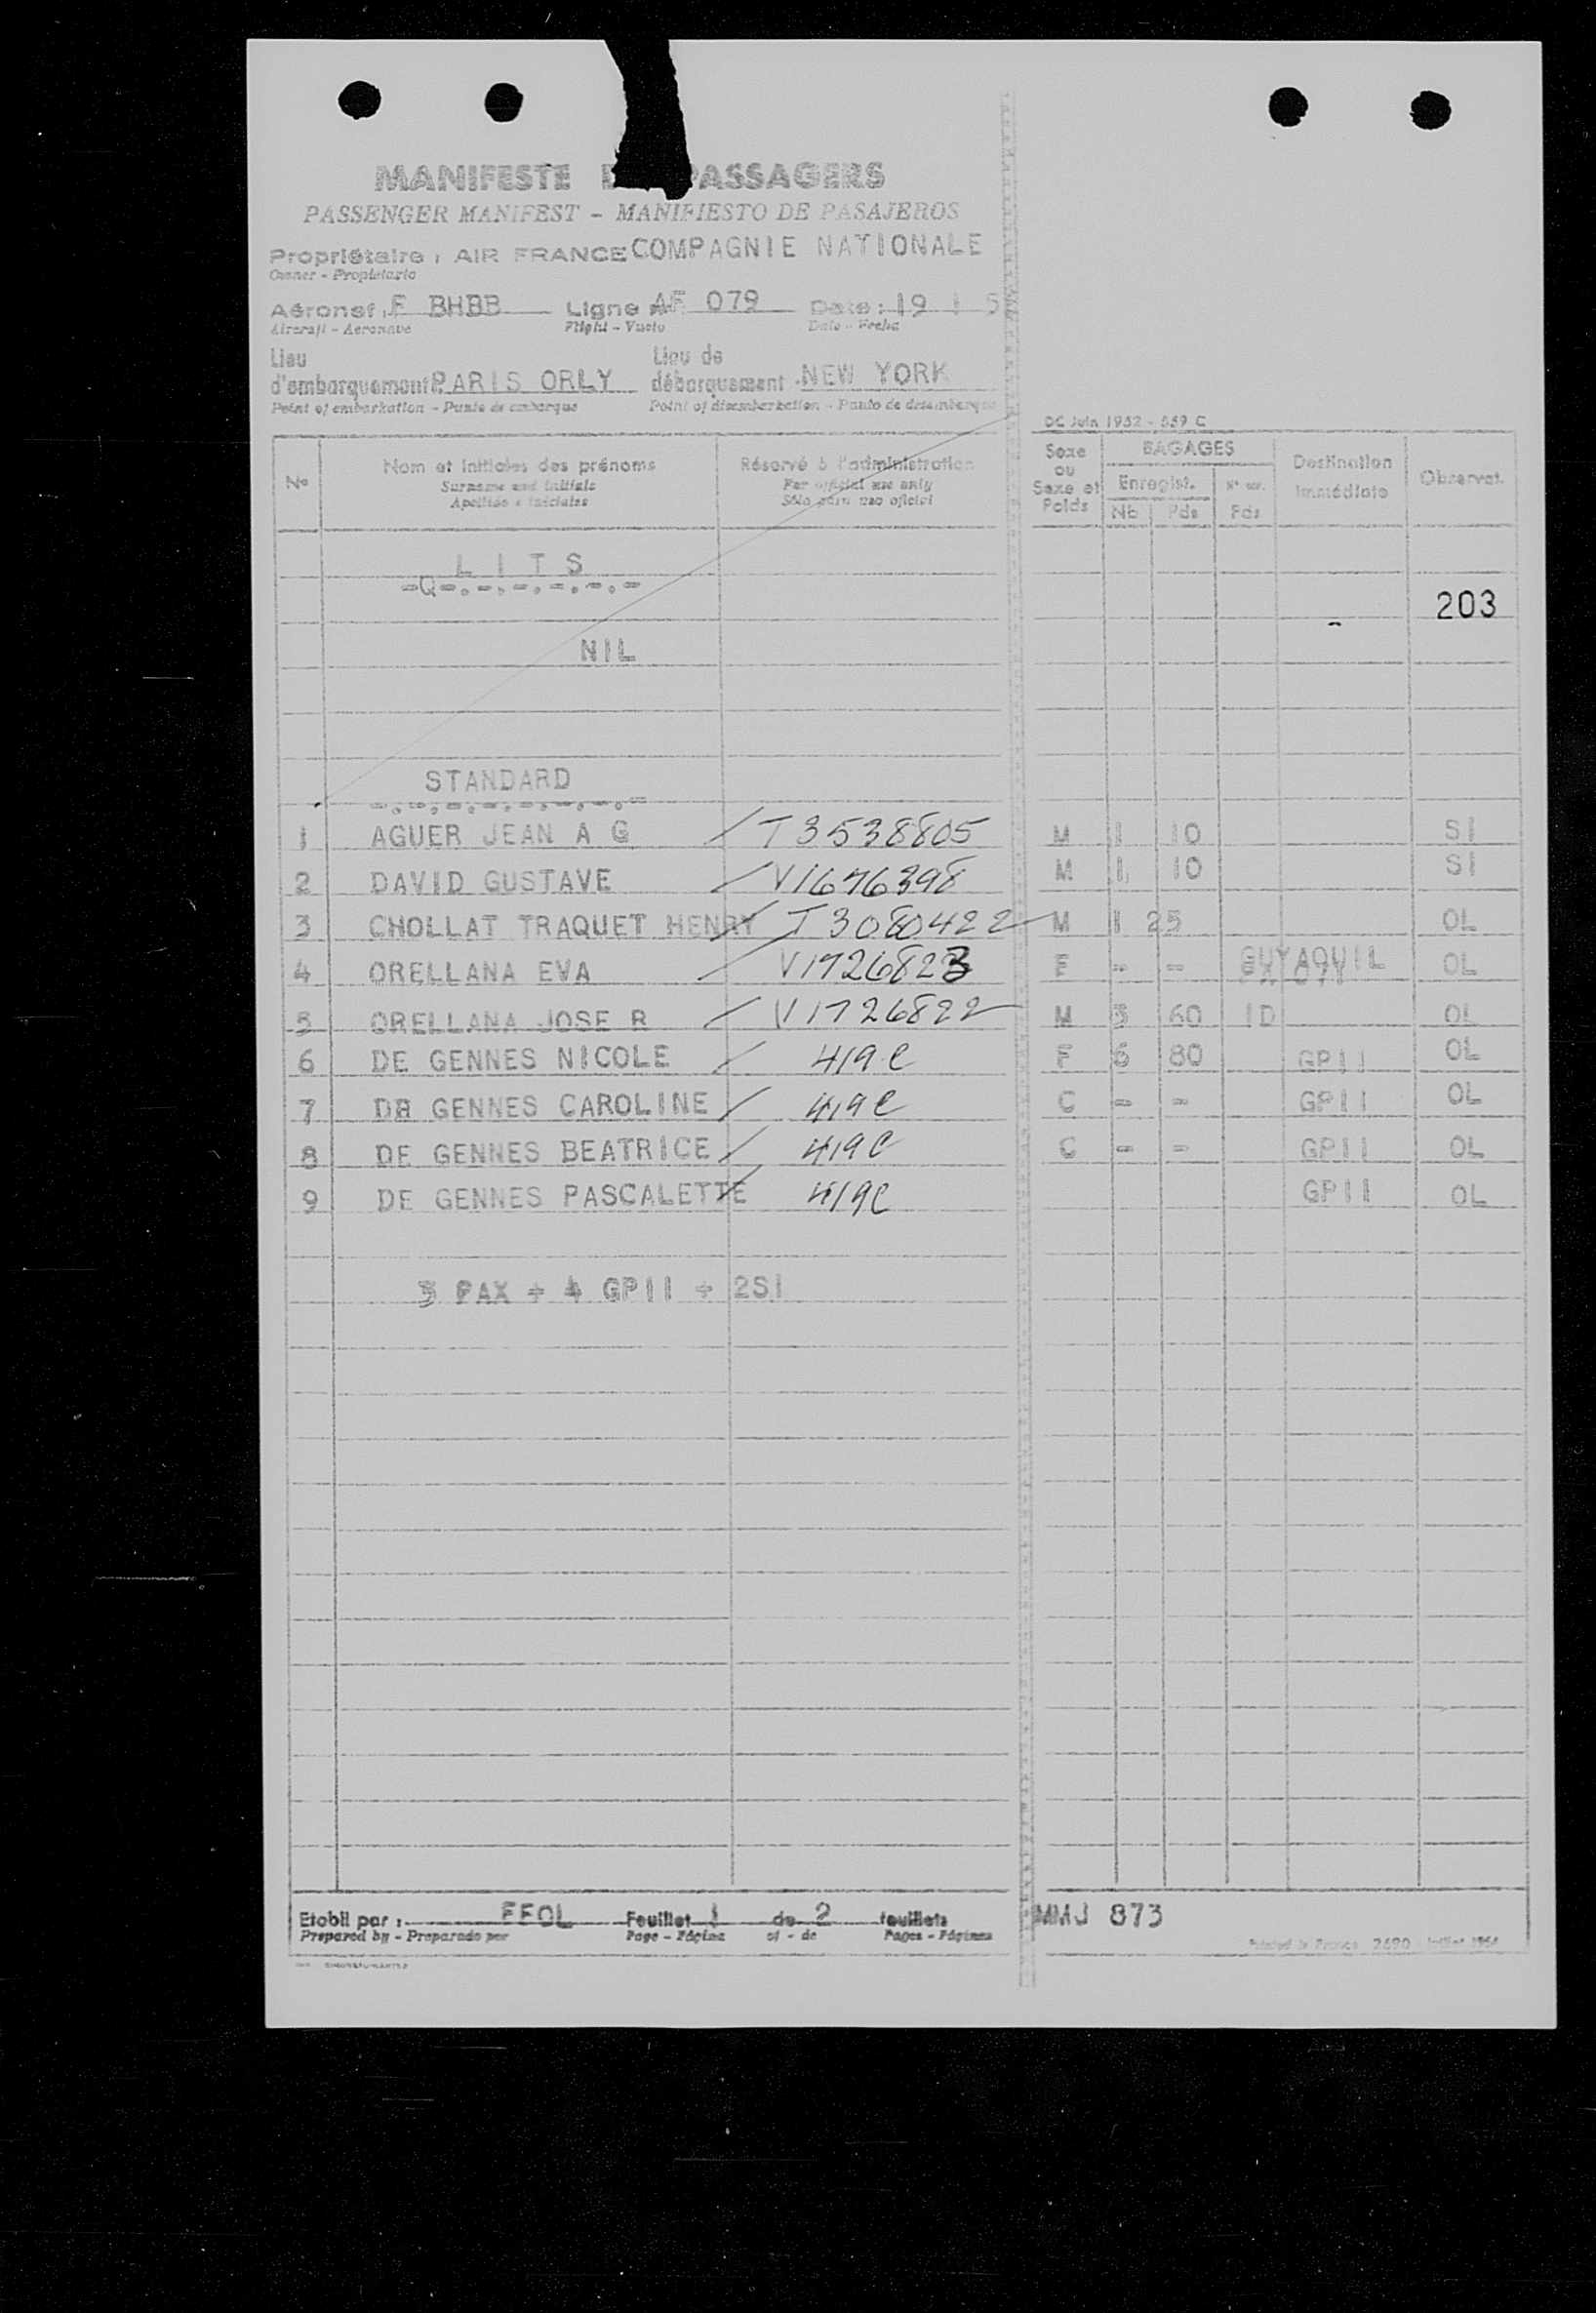 MANIFESTE PASSAGERS
PASSENGER MANIFEST - MANIFIESTO DE PASAJEROS
Propriétaire : AIR FRANCE COMPAGNIE NATIONALE
Owner - Propietario
Aéronef : F BHBB Ligne AF 079 Date : 19 1 5
Aircraft - Aeronave Flight - Vuelo Date - Fecha
Lieu d'embarquement PARIS ORLY Lieu de débarquement NEW YORK
Point of embarkation - Punto de embarque Point of disembarkation - Punto de desembarque
OC Juin 1952 - 559 C
Nº Nom et initiales des prénoms Réservé à l'administration Sexe ou Sexe et Poids BAGAGES Destination immédiate Observat.
Surname and initials For official use only Enregist.
Apellido e iniciales Sólo para uso oficial Nb Pds Pds
L I T S
203
NIL
STANDARD
1 AGUER JEAN A G / T3538805 M 1 10 SI
2 DAVID GUSTAVE / V1676398 M 1 10 SI
3 CHOLLAT TRAQUET HENRY / T3080422 M 1 25 OL
4 ORELLANA EVA / V1726823 F - - GUYAQUIL OL
5 ORELLANA JOSE R / V1726822 M 3 60 ID OL
6 DE GENNES NICOLE / 419 C F 6 80 GPII OL
7 DE GENNES CAROLINE / 419 C C - - GPII OL
8 DE GENNES BEATRICE / 419 C C - - GPII OL
9 DE GENNES PASCALETTE / 419 C GPII OL
3 PAX + 4 GPII + 2SI
Etabli par : EFOL Feuillet 1 de 2 feuillets MMJ 873
Prepared by - Preparado por Page - Página of - de Pages - Páginas
Printed in France 2690